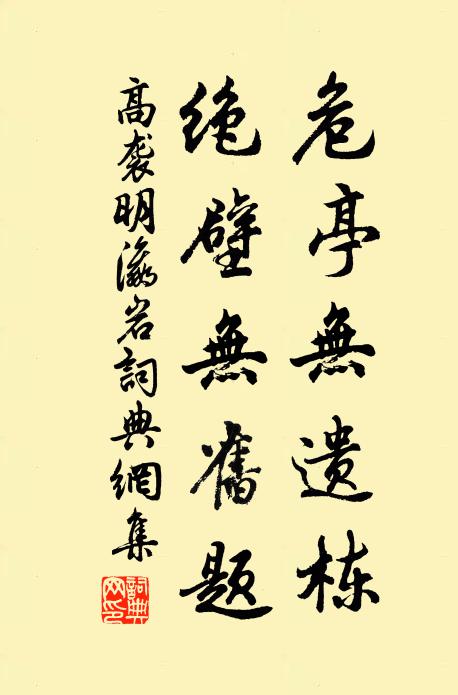 危亭無遗栋
绝壁無舊题
高袭明瀛岩詞典網集
詞典网印